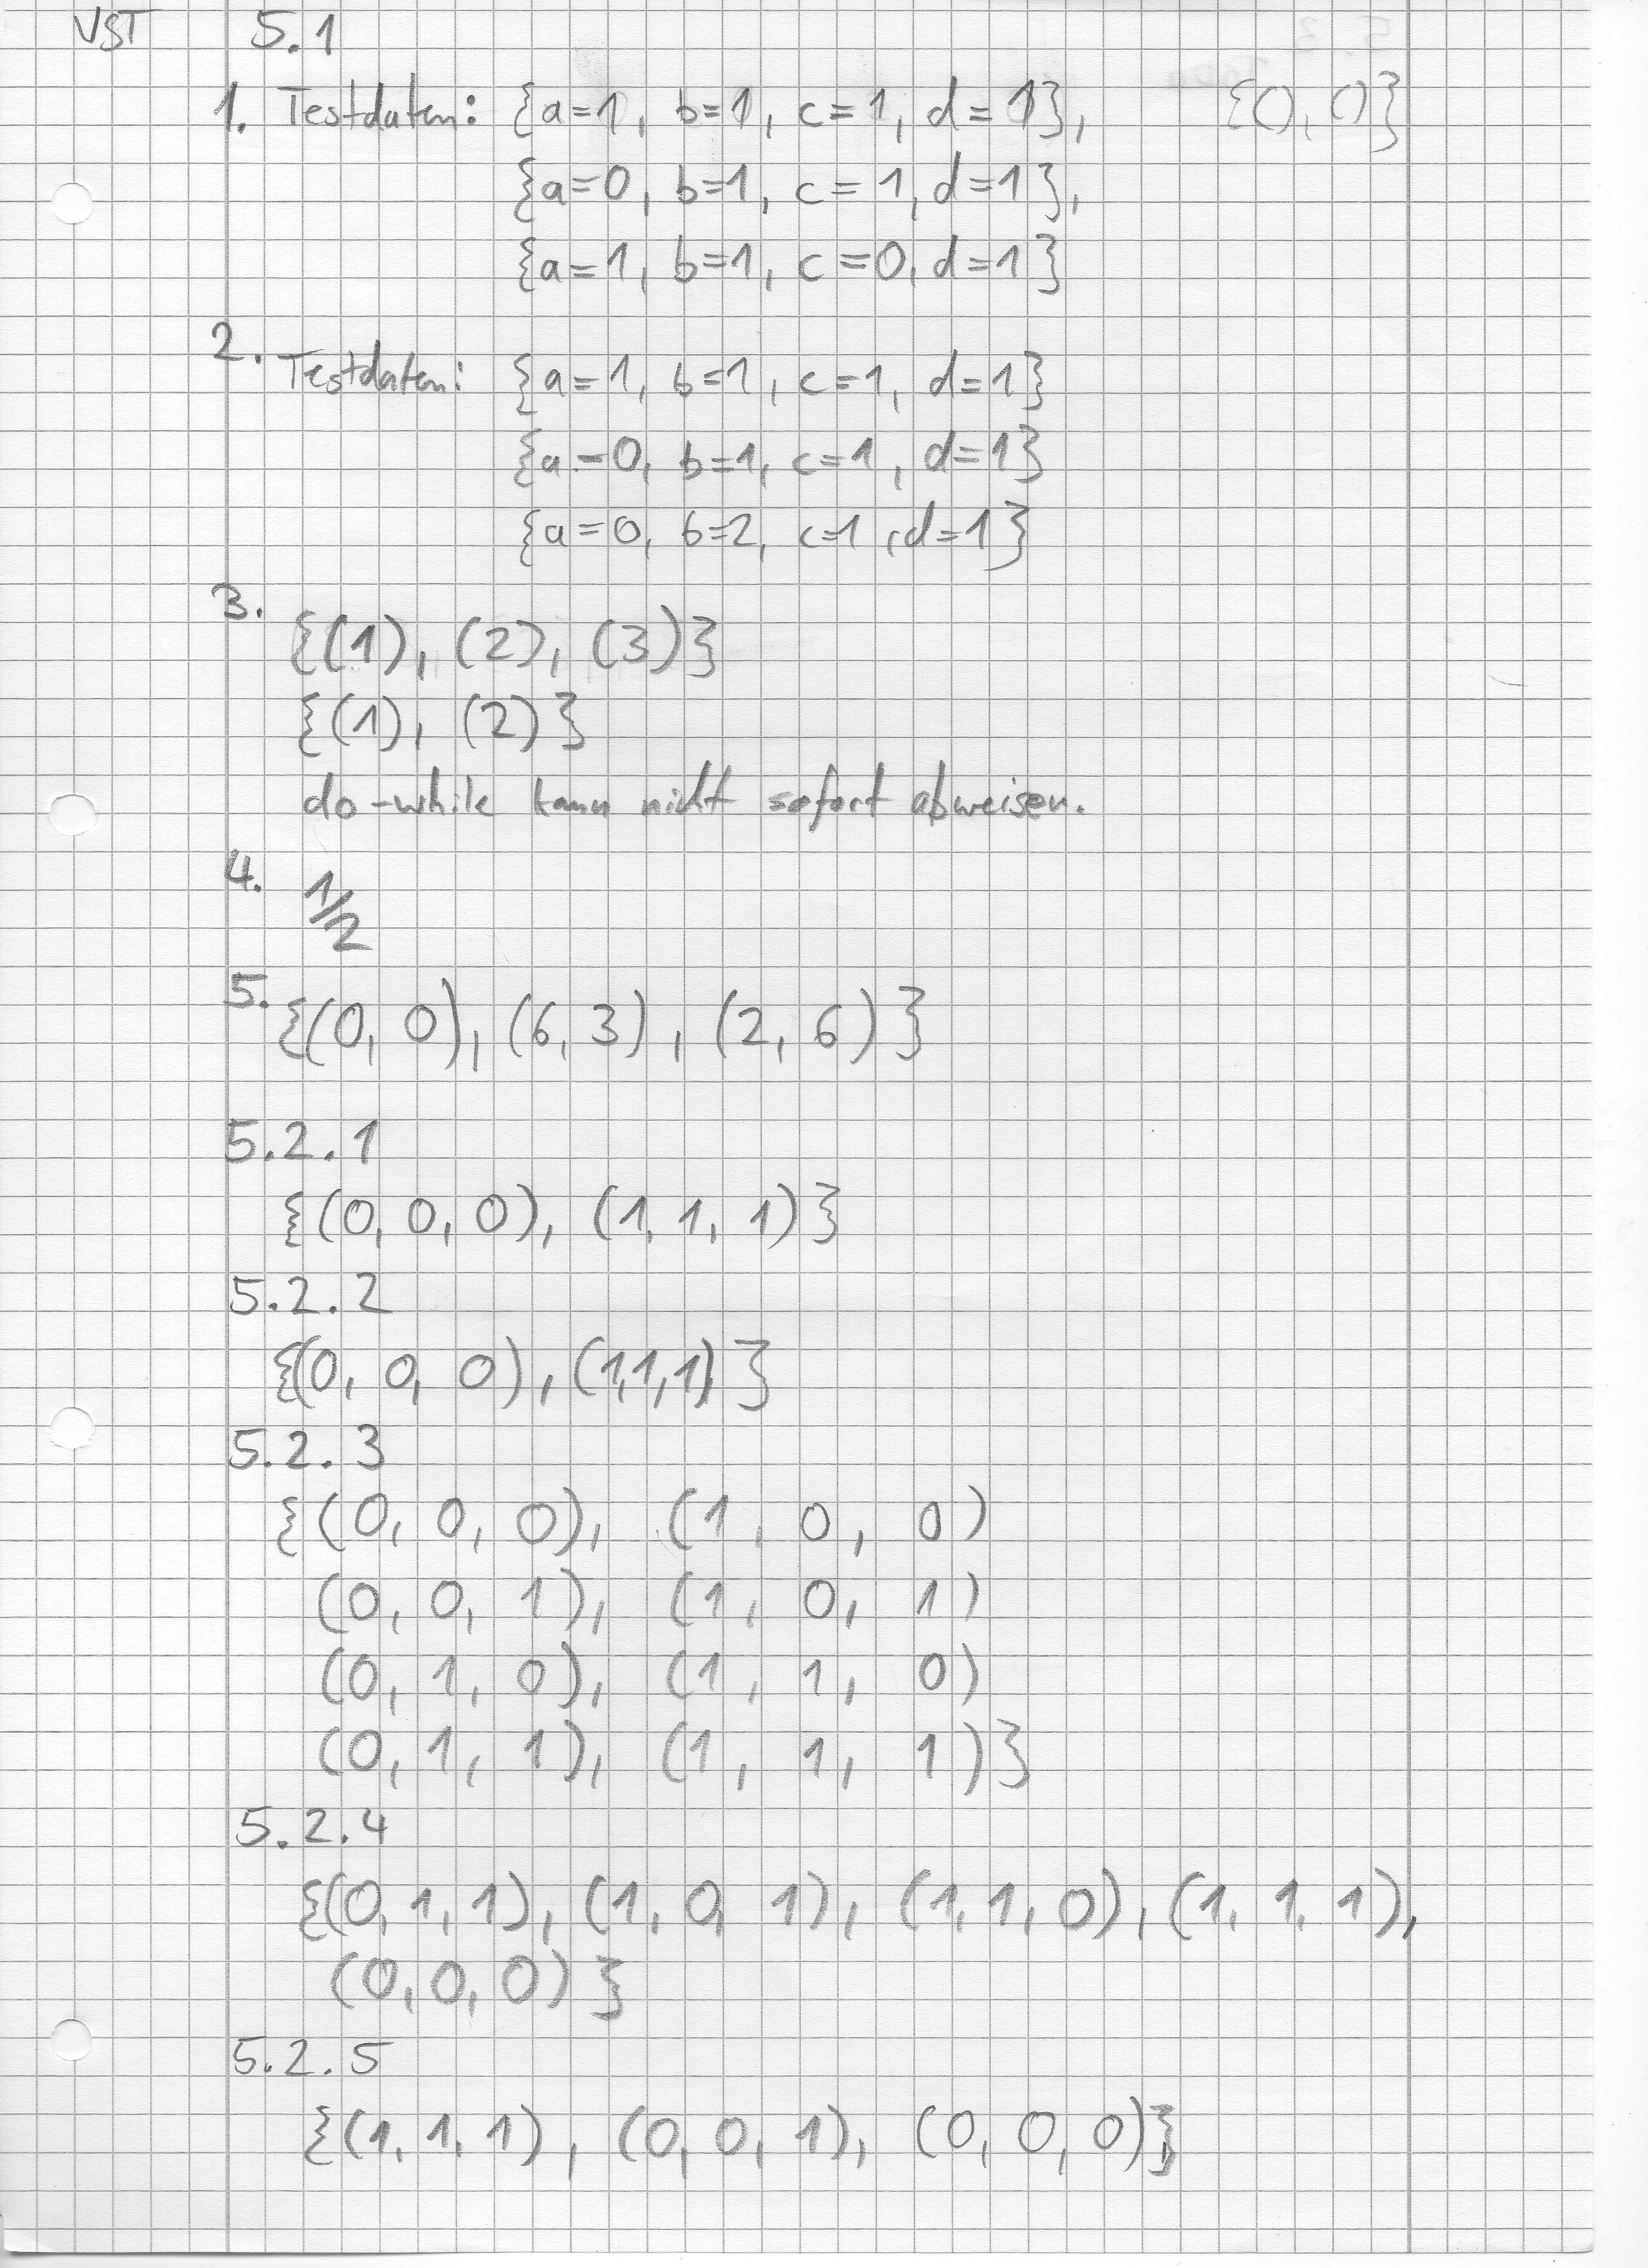 VST 5.1
1. Testdaten: {a=1, b=1, c=1, d=1}, {0, 0}
{a=0, b=1, c=1, d=1},
{a=1, b=1, c=0, d=1}
2. Testdaten: {a=1, b=1, c=1, d=1}
{a=0, b=1, c=1, d=1}
{a=0, b=2, c=1, d=1}
3. {(1), (2), (3)}
{(1), (2)}
do-while kann nicht sofort abweisen.
4. 1/2
5. {(0, 0), (6, 3), (2, 6)}
5.2.1
{(0, 0, 0), (1, 1, 1)}
5.2.2
{(0, 0, 0), (1,1,1)}
5.2.3
{(0, 0, 0), (1, 0, 0)
(0, 0, 1), (1, 0, 1)
(0, 1, 0), (1, 1, 0)
(0, 1, 1), (1, 1, 1)}
5.2.4
{(0, 1, 1), (1, 0, 1), (1, 1, 0), (1, 1, 1),
(0, 0, 0)}
5.2.5
{(1, 1, 1), (0, 0, 1), (0, 0, 0)}